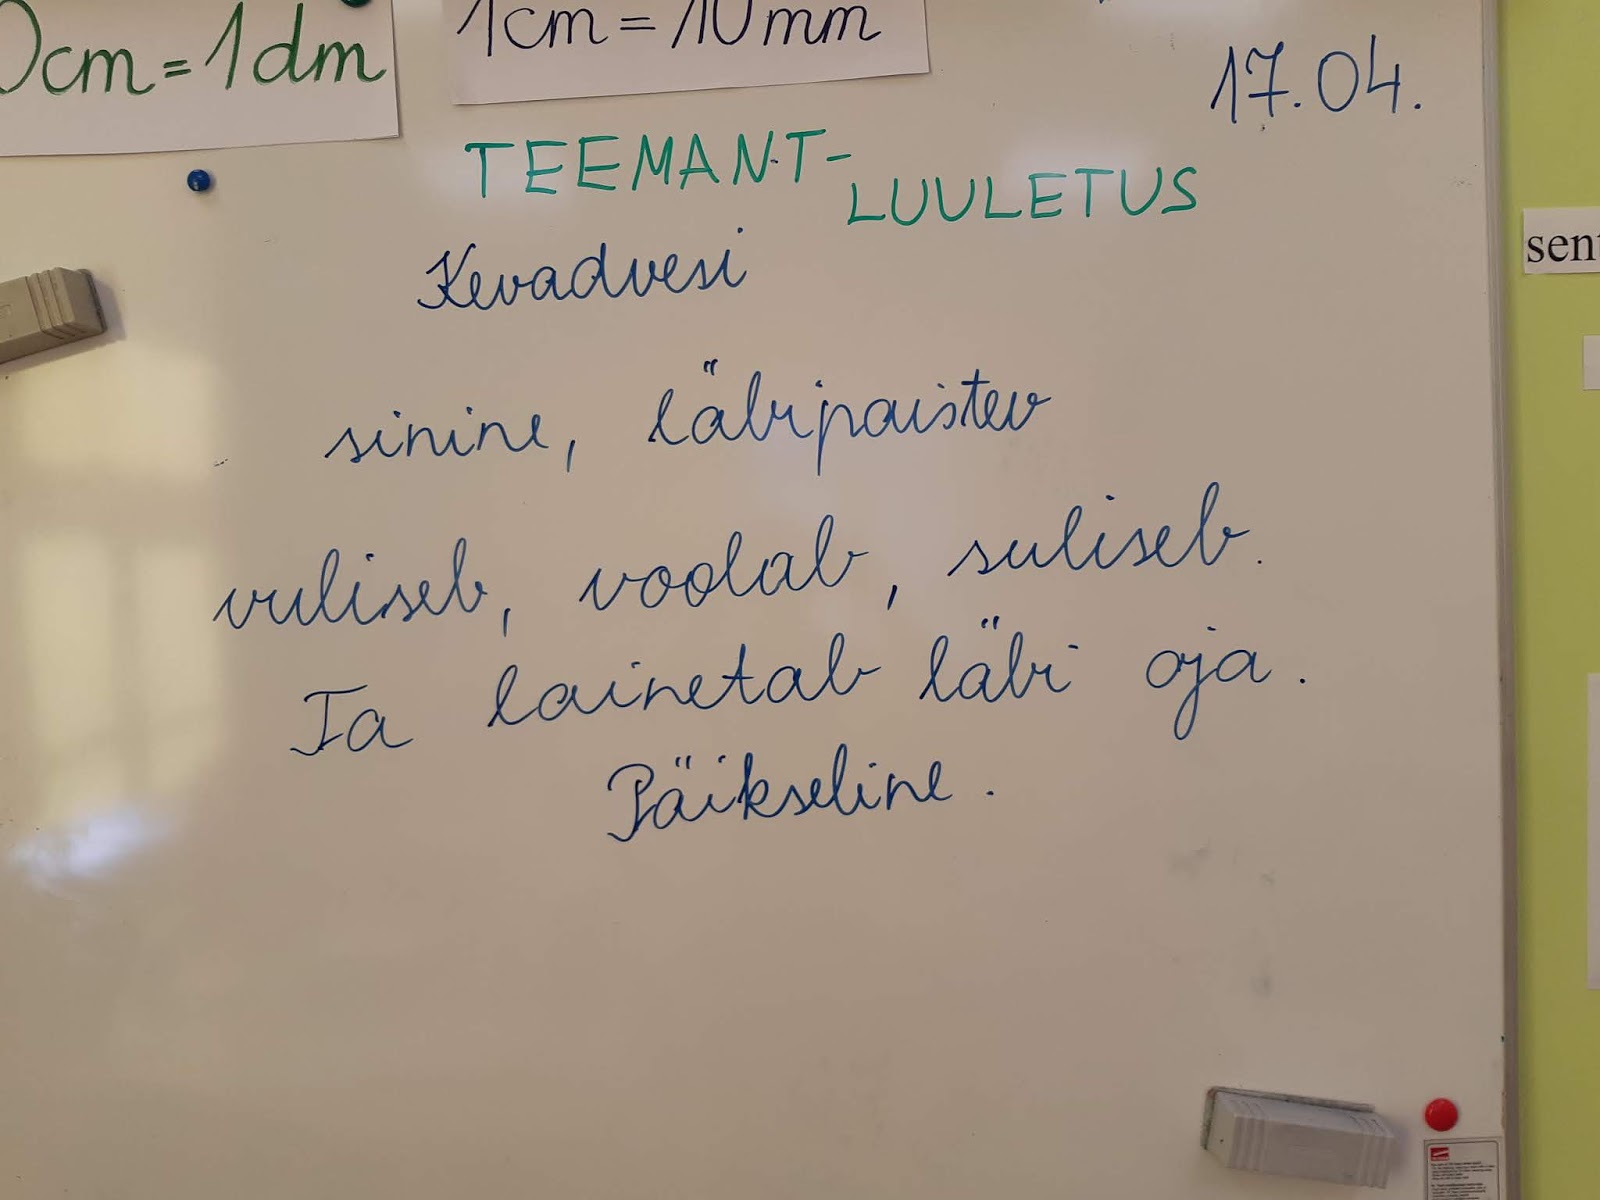 0cm=1dm
1cm=10mm
17.04.
TEEMANT-
LUULETUS
Kevadvesi
sinine, läbipaistev
vuliseb, voolab, suliseb.
Ta lainetab läbi oja.
Päikseline.
sent